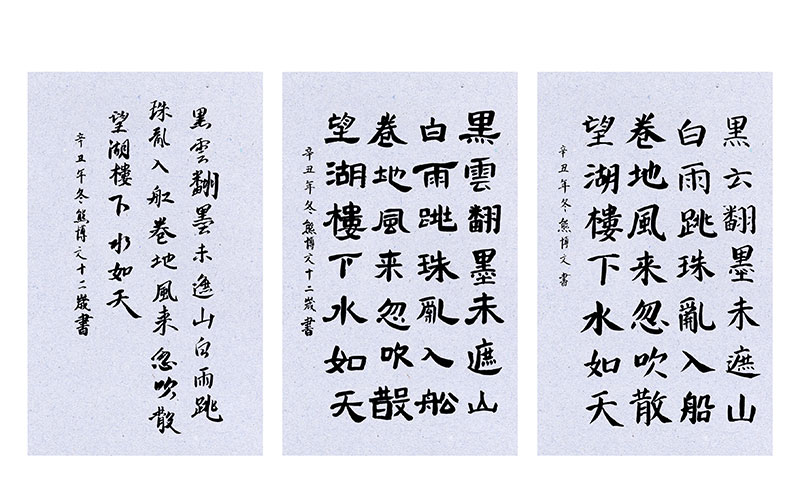 黑云翻墨未遮山
白雨跳珠亂入船
卷地風来忽吹散
望湖樓下水如天
辛丑年冬熊博文書
黑雲翻墨未遮山
白雨跳珠亂入船
卷地風来忽吹散
望湖樓下水如天
辛丑年冬熊博文十二歲書
黑雲翻墨未遮山白雨跳
珠亂入船卷地風来忽吹散
望湖樓下水如天
辛丑年冬熊博文十二歲書